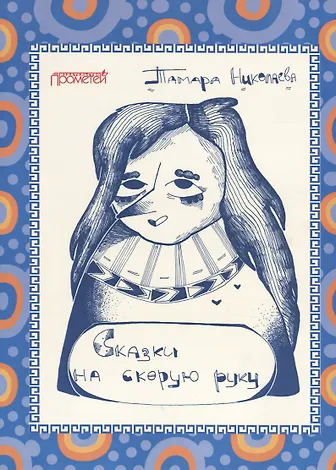 ПРОМЕТЕЙ
Тамара Николаева
Сказки
на скорую руку